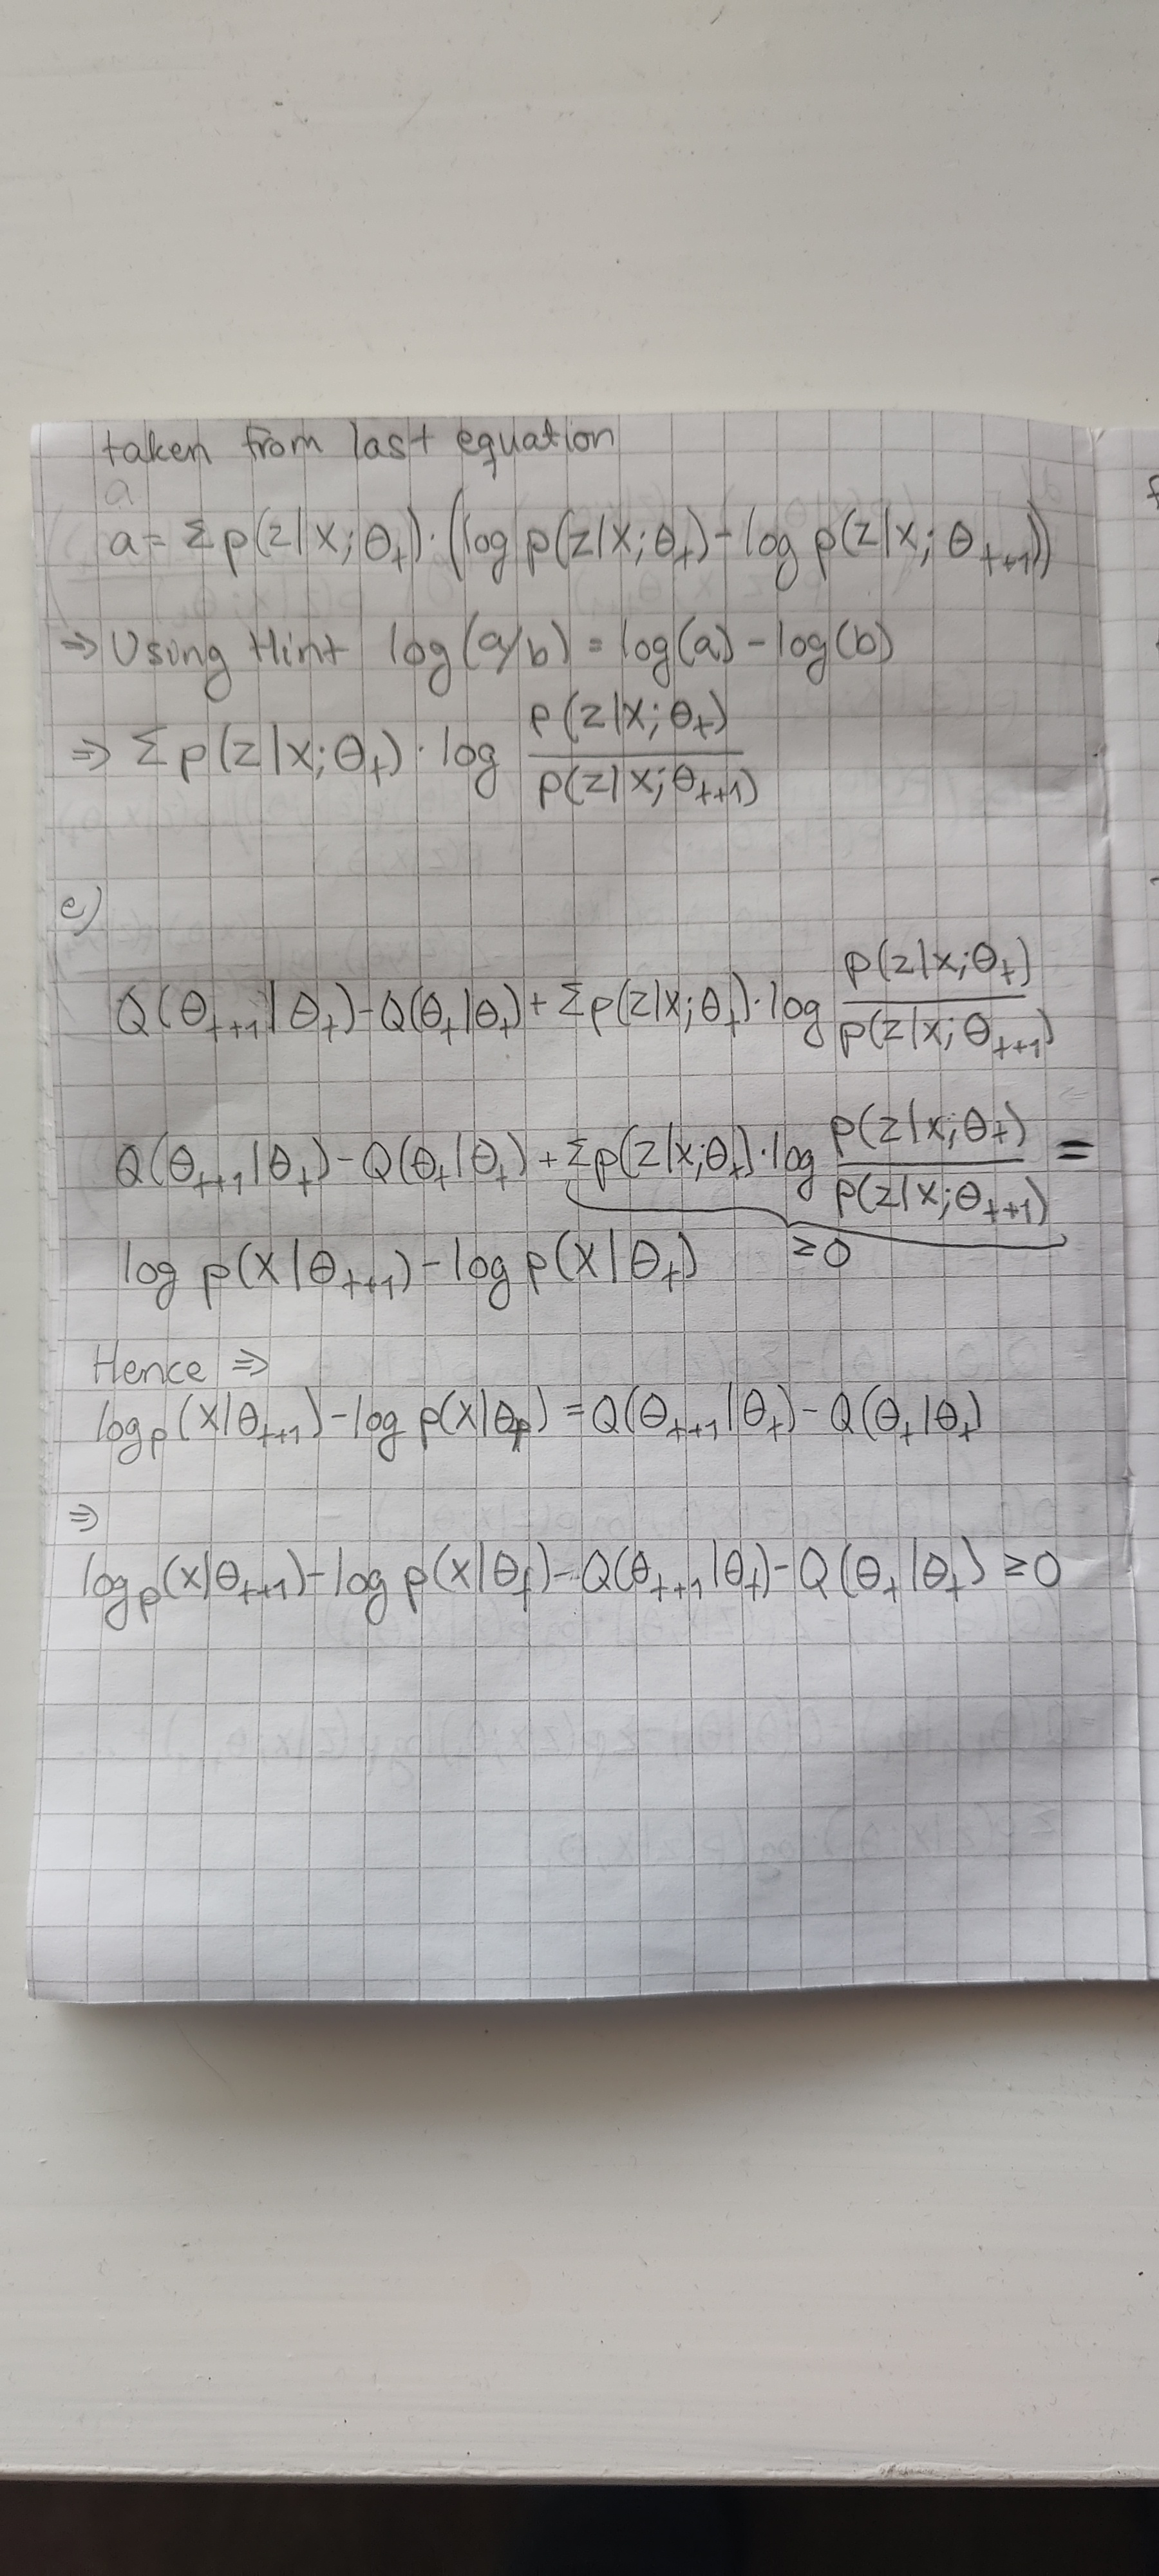 taken from last equation
a
a = Σp(z|x;θₜ)·(log p(z|x;θₜ) - log p(z|x;θₜ₊₁))
⇒ Using Hint log(a/b) = log(a) - log(b)
⇒ Σp(z|x;θₜ)·log p(z|x;θₜ) / p(z|x;θₜ₊₁)
e)
Q(θₜ₊₁|θₜ) - Q(θₜ|θₜ) + Σp(z|x;θₜ)·log p(z|x;θₜ) / p(z|x;θₜ₊₁)
Q(θₜ₊₁|θₜ) - Q(θₜ|θₜ) + Σp(z|x;θₜ)·log p(z|x;θₜ) / p(z|x;θₜ₊₁) =
log p(x|θₜ₊₁) - log p(x|θₜ) ≥0
Hence ⇒
log p(x|θₜ₊₁) - log p(x|θₜ) = Q(θₜ₊₁|θₜ) - Q(θₜ|θₜ)
⇒
log p(x|θₜ₊₁) - log p(x|θₜ) - Q(θₜ₊₁|θₜ) - Q(θₜ|θₜ) ≥0